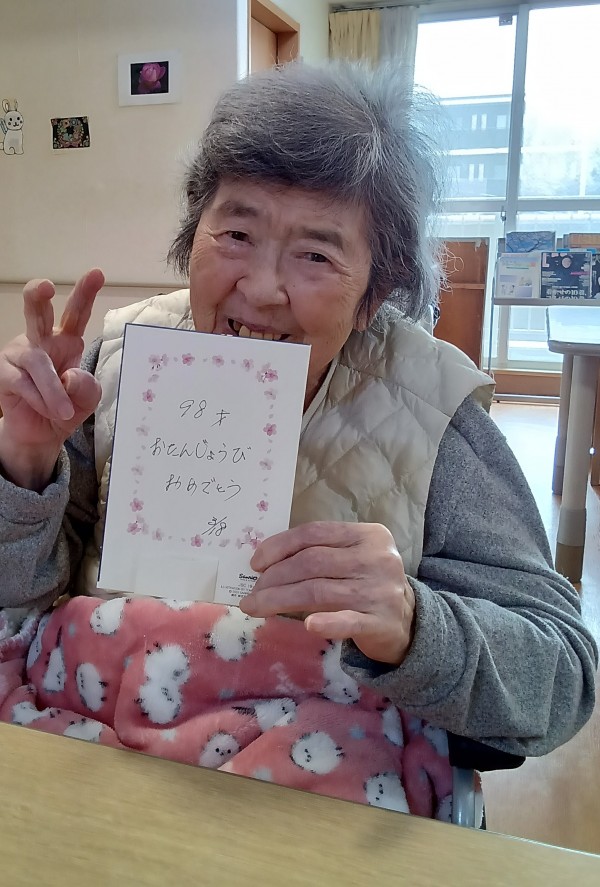 98才
おたんじょうび
おめでとう
3/8